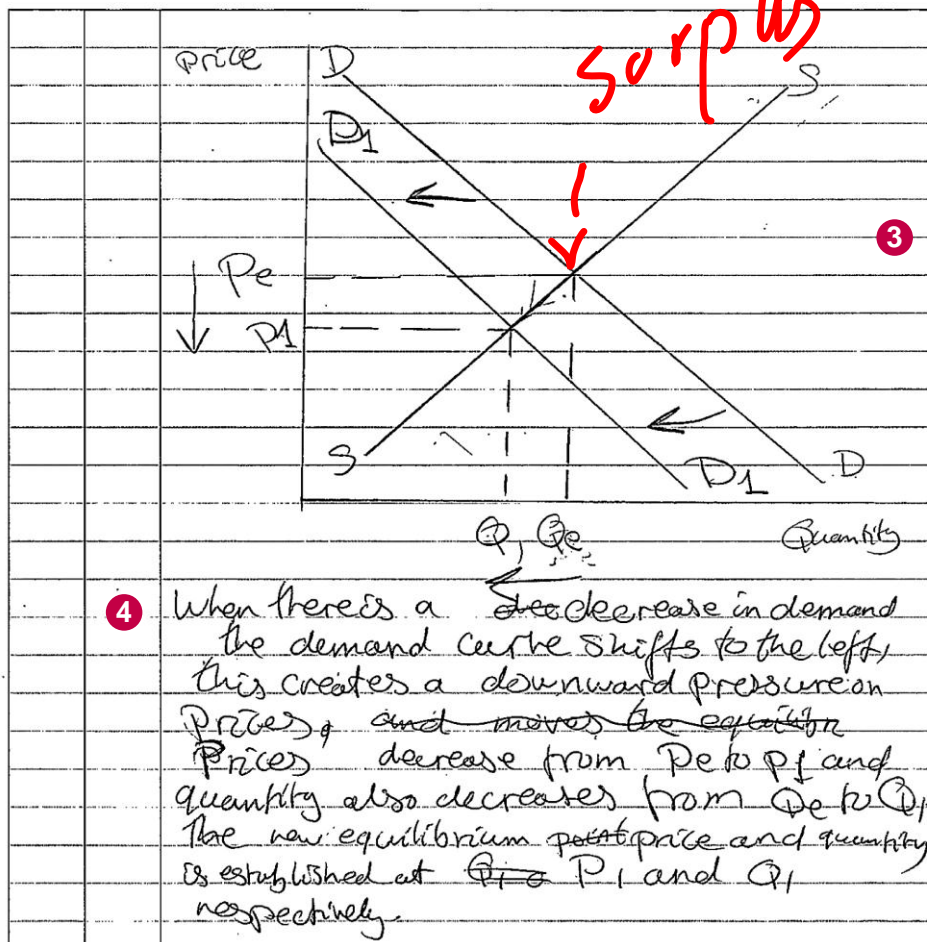 surplus
price D S
D1
3
Pe
P1
S D1 D
Q1 Qe Quantity
4 When there is a dec decrease in demand
the demand curve shifts to the left,
this creates a downward pressure on
prices, and moves the equilibr
Prices decrease from Pe to P1 and
quantity also decreases from Qe to Q1
The new equilibrium point price and quantity
is established at Q1 P1 and Q1
respectively.